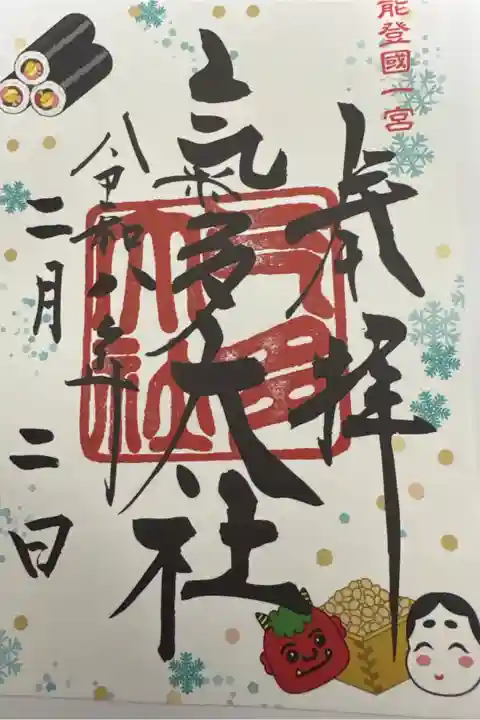 能登國一宮
奉拝
氣多大社
令和八年
二月二日